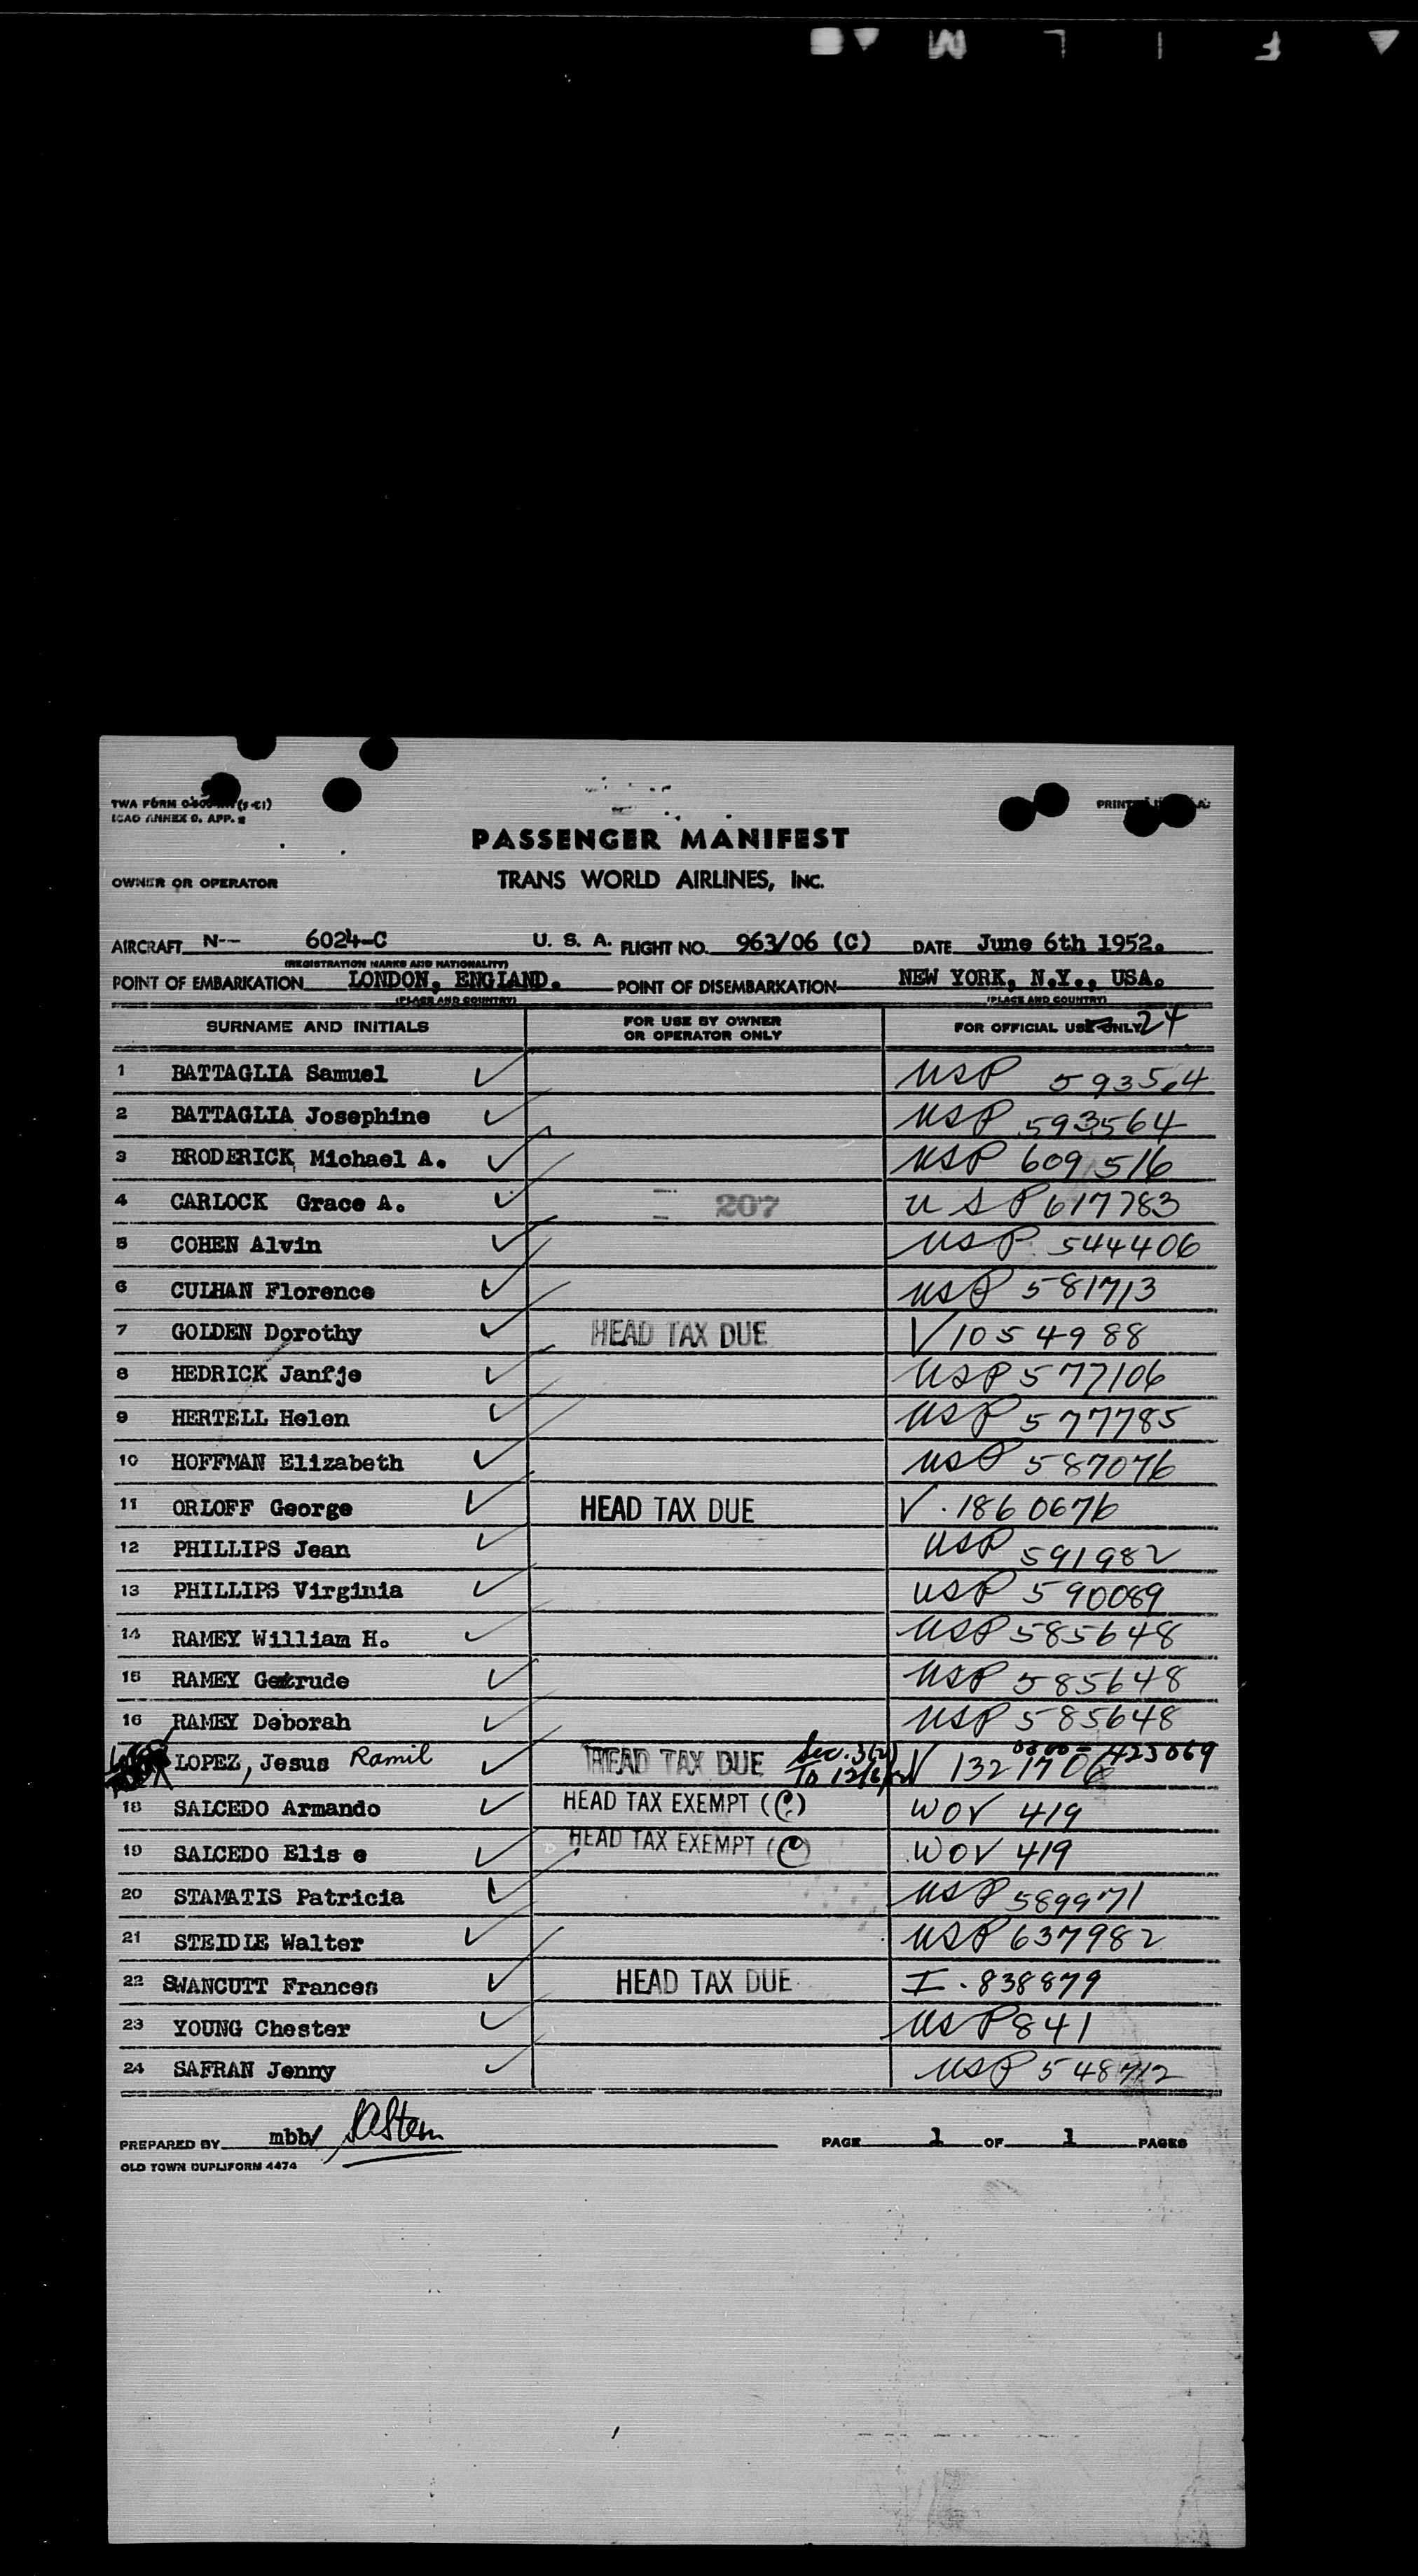 F I L M
TWA FORM
ICAO ANNEX 9. APP. 2
PASSENGER MANIFEST
OWNER OR OPERATOR TRANS WORLD AIRLINES, INC.
AIRCRAFT N-- 6024-C U. S. A. FLIGHT NO. 963/06 (C) DATE June 6th 1952.
(REGISTRATION MARKS AND NATIONALITY)
POINT OF EMBARKATION LONDON, ENGLAND. POINT OF DISEMBARKATION NEW YORK, N.Y., USA.
(PLACE AND COUNTRY) (PLACE AND COUNTRY)
SURNAME AND INITIALS FOR USE BY OWNER OR OPERATOR ONLY FOR OFFICIAL USE ONLY 24
1 BATTAGLIA Samuel USP
2 BATTAGLIA Josephine USP 593564
3 BRODERICK Michael A. USP 609516
4 CARLOCK Grace A. 207 USP 617783
5 COHEN Alvin USP 544406
6 CULHAN Florence USP 581713
7 GOLDEN Dorothy HEAD TAX DUE V 1054988
8 HEDRICK Janfje USP 577106
9 HERTELL Helen USP 577785
10 HOFFMAN Elizabeth USP 587076
11 ORLOFF George HEAD TAX DUE V. 1860676
12 PHILLIPS Jean USP 591982
13 PHILLIPS Virginia USP 590089
14 RAMEY William H. USP 585648
15 RAMEY Getrude USP 585648
16 RAMEY Deborah USP 585648
LOPEZ, Jesus Ramil HEAD TAX DUE Sec. 3(2) To 12/6/52 V 1321706
18 SALCEDO Armando HEAD TAX EXEMPT (C) WOV 419
19 SALCEDO Elis e HEAD TAX EXEMPT (C) WOV 419
20 STAMATIS Patricia USP 589971
21 STEIDLE Walter USP 637982
22 SWANCUTT Frances HEAD TAX DUE I. 838879
23 YOUNG Chester USP 841
24 SAFRAN Jenny USP 548712
PREPARED BY mbb/ PAGE 1 OF 1 PAGES
OLD TOWN DUPLIFORM 4474